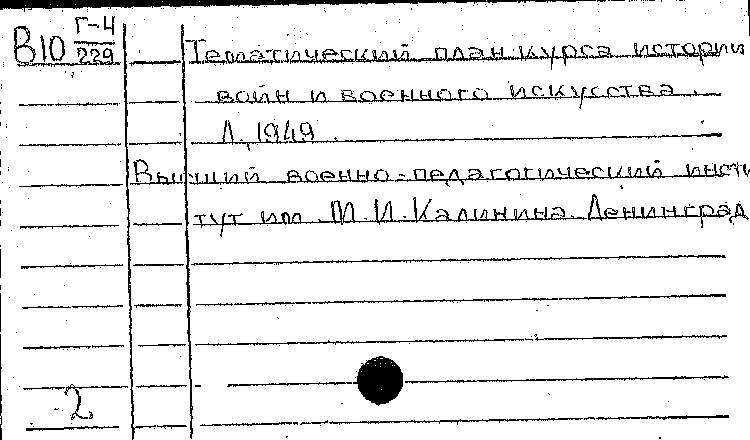 В10 Г-4/229
Тематический план курса истории
войн и военного искусства.
Л. 1949.
Высший военно-педагогический инсти
тут им. М.И. Калинина. Ленинград
2